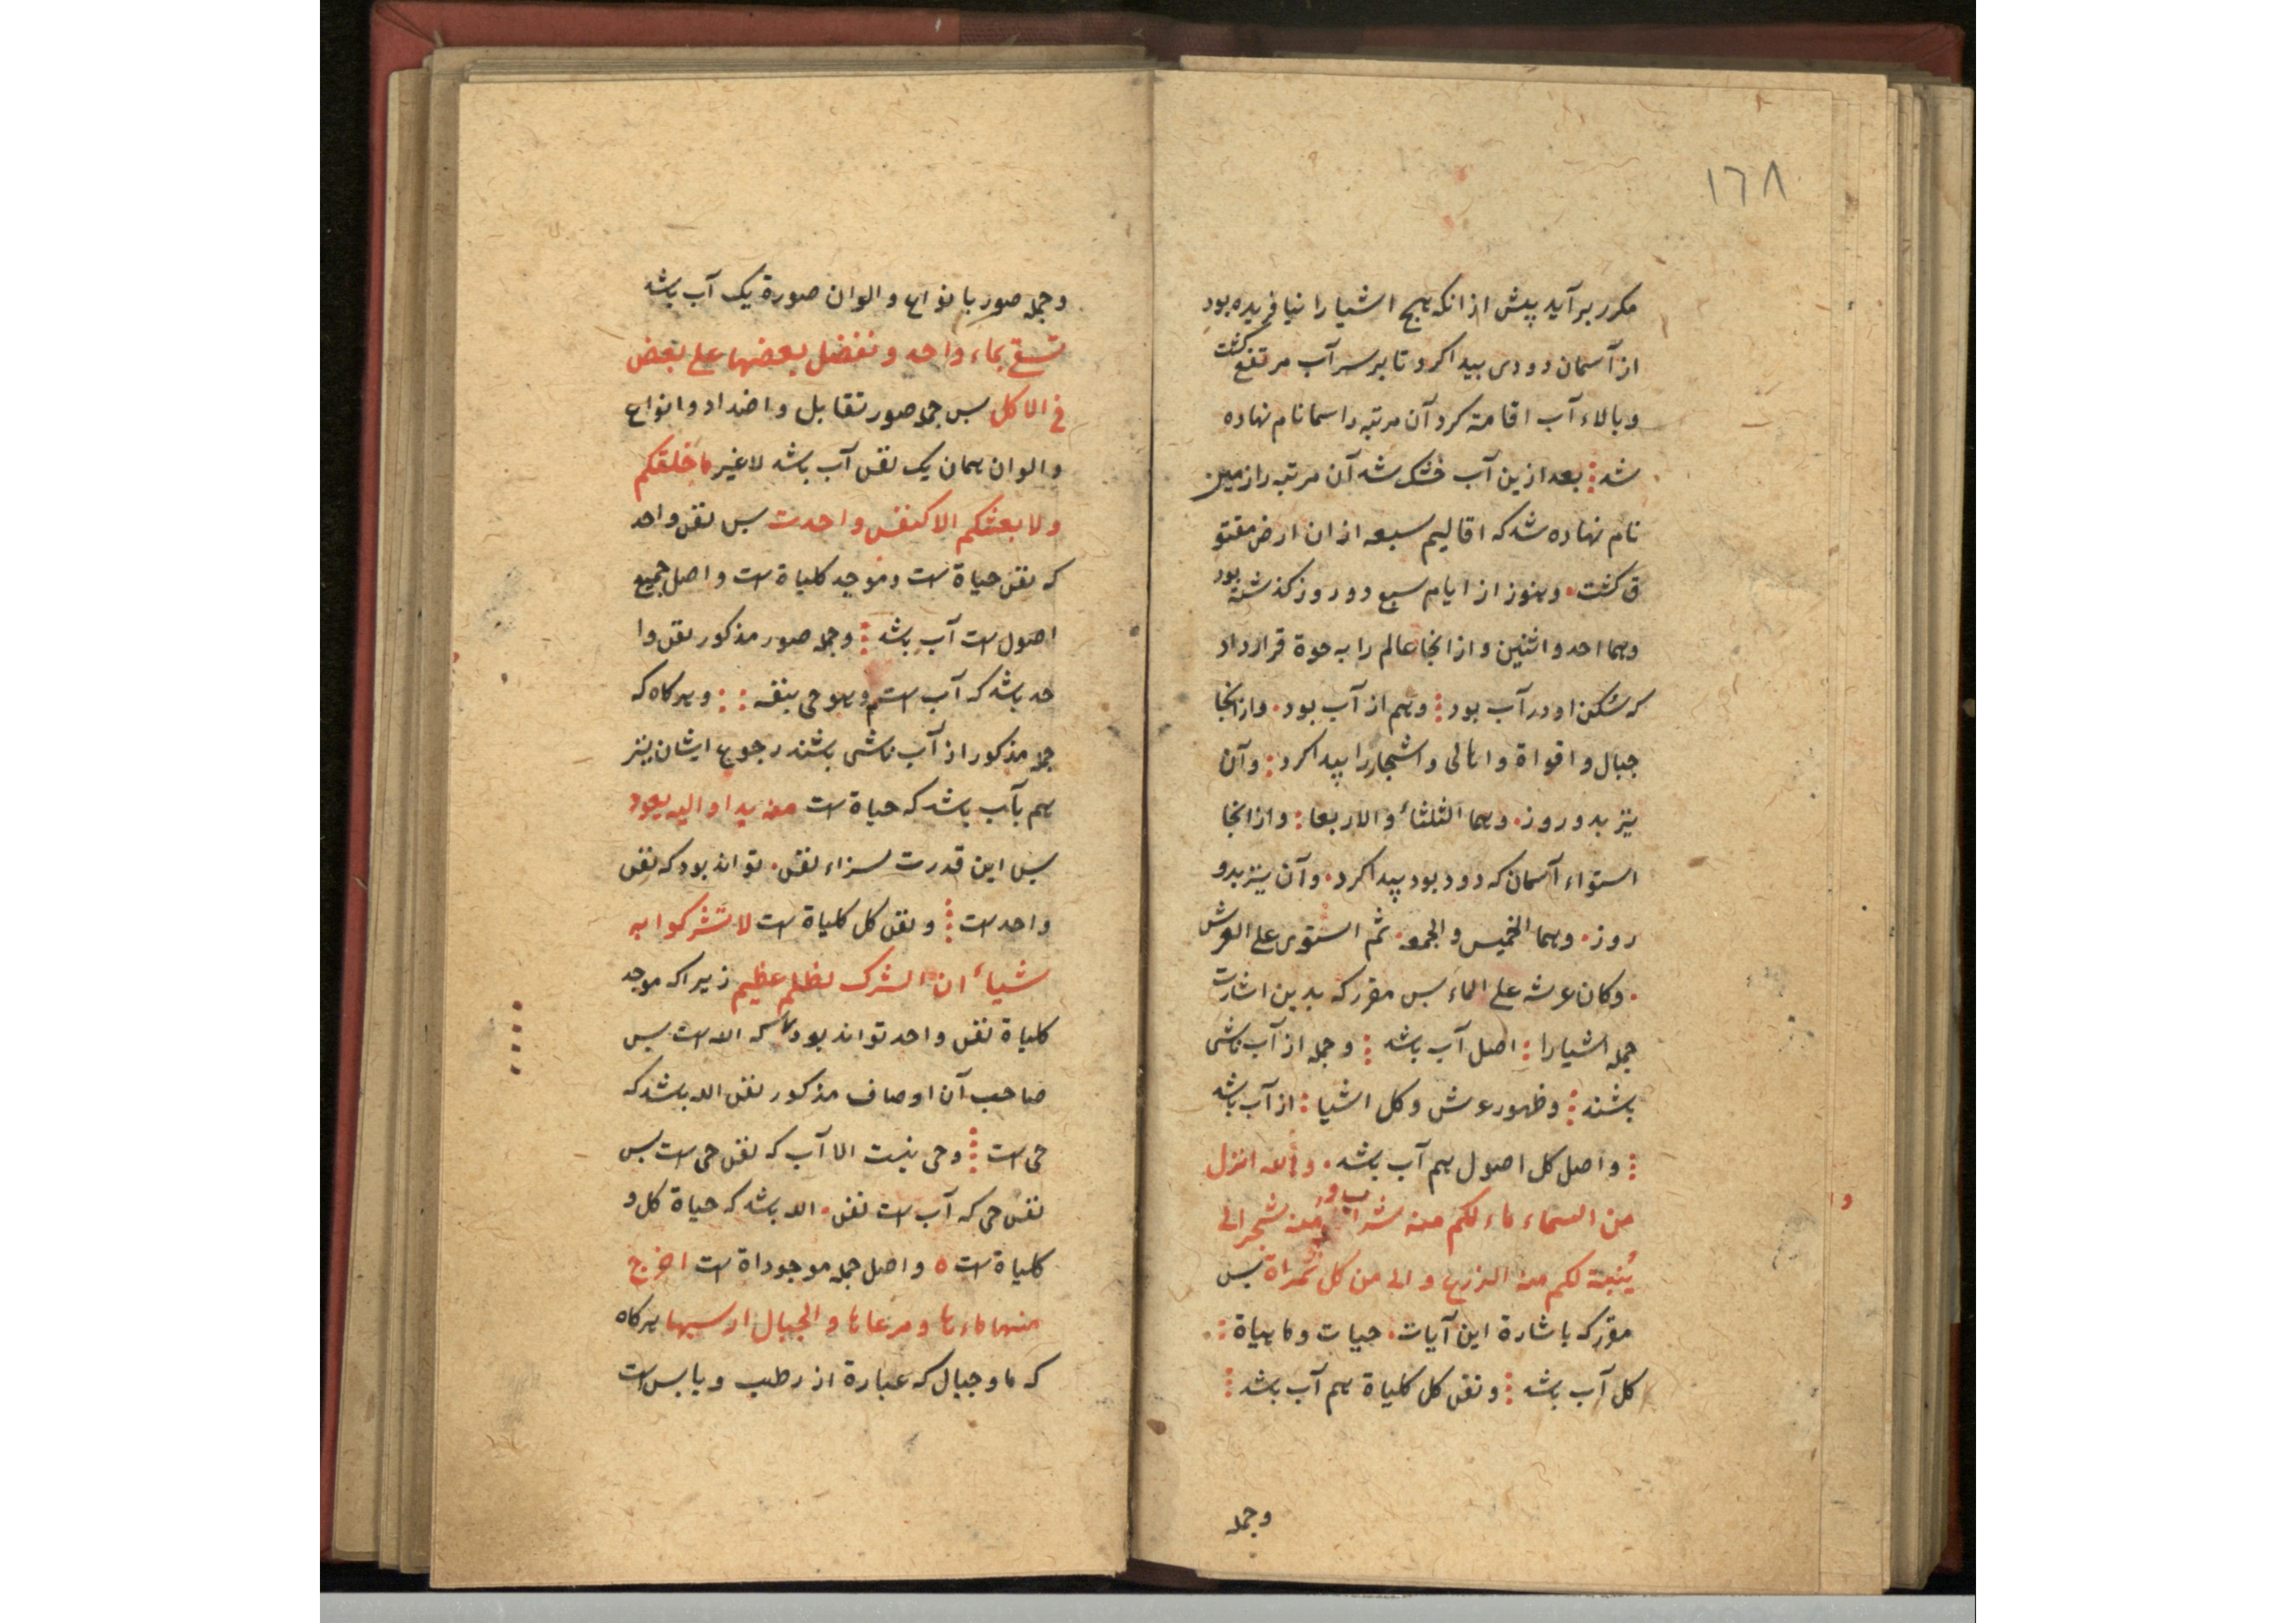 ١٦٨
مکرر برآید پیش از انکه هیچ اشیا را نیافریده بود
از آسمان دودی بیدا کرد تا بر سر آب مرتفع کشت
و بالاء آب اقامة کرد آن مرتبه را سما نام نهاده
شد بعد ازین آب خشک شد آن مرتبه را زمین
نام نهاده شد که اقالیم سبعه از ان ارض مفتو
ق کشت و هنوز از ایام سبع دو روز کذشته بود
و هما احد و اثنین و از انجا عالم را به حوة قرار داد
که سکن او در آب بود و هم از آب بود و از انجا
جبال و اقواة و اهالی و اشجار را پیدا کرد و آن
نیز بدو روز و هما الثلثاء و الاربعا و از انجا
استواء آسمان که دود بود پیدا کرد و آن نیز بدو
روز و هما الخمیس و الجمعه ثم استوی علی العرش
و کان عرشه علی الماء بس مقرر که بدین اشارت
جمله اشیا را اصل آب باشد و جمله از آب ناشی
باشند و ظهور عرش و کل اشیا از آب باشد
و اصل کل اصول هم آب باشد و الله انزل
من السماء ماء لکم منه شراب و منه شجر الی
ینبتة لکم منه الزرع و الی من کل ثمراة بس
مقرر که باشارة این آیات حیات و ماهیاة
کل آب باشد و نفس کل کلیاة هم آب باشد
وجمله
وجمله صور بانواع و الوان صورة یک آب باشد
تسقی بماء واحد و نفضل بعضها علی بعض
فی الاکل بس جمله صور تقابل و اضداد و انواع
و الوان همان یک نفس آب باشد لاغیر ما خلقکم
ولا بعثکم الا کنفس واحدت بس نفس واحد
که نفس حیاة ست و موجد کلیاة ست و اصل جمیع
اصول ست آب باشد و جمله صور مذکور نفس وا
حد باشد که آب ست و هو حی بنفسه و هرکاه که
جمله مذکور از آب ناشی باشند رجوع ایشان نیز
هم بآب باشد که حیاة ست منه بدا و الیه یعود
بس این قدرت سزاء نفس تواند بود که نفس
واحد ست و نفس کل کلیاة ست لا تشرکوا به
شیاء ان الشرک لظلم عظیم زیرا که موجد
کلیاة نفس واحد تواند بود که اله ست بس
صاحب آن اوصاف مذکور نفس الله باشد که
حی ست و حی نیست الا آب که نفس حی ست بس
نفس حی که آب ست نفس الله باشد که حیاة کل و
کلیاة ست ٥ و اصل جمله موجوداة ست اخرج
منها ماءها و مرعاها و الجبال ارسیها هرکاه
که ما و جبال که عبارة از رطب و یابس ست